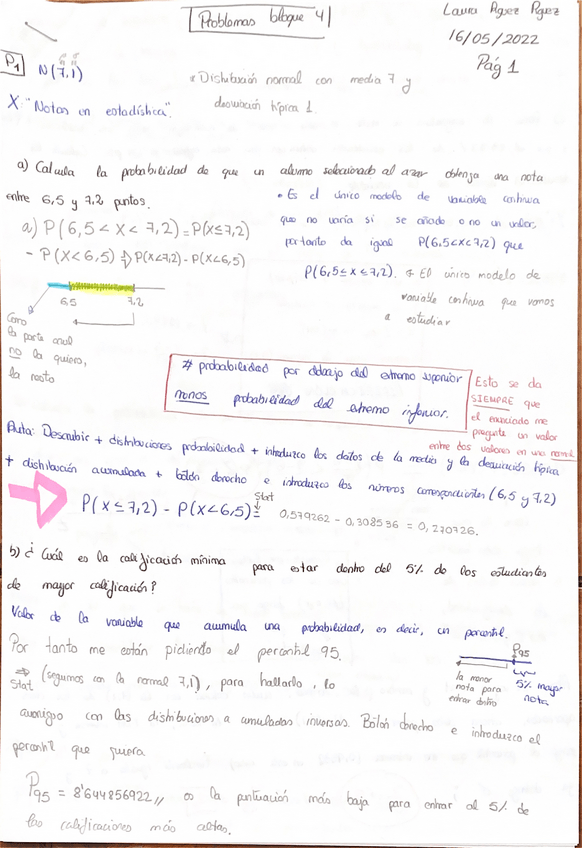 Problemas bloque 4
Laura Pgez Pgez
16/05/2022
Pág 1
P1
N(7,1)
X: "Notas en estadística".
* Distribución normal con media 7 y
desviación típica 1.
a) Calcula la probabilidad de que un alumno seleccionado al azar obtenga una nota
entre 6,5 y 7,2 puntos.
• Es el único modelo de variable continua
que no varía si se añade o no un valor,
por tanto da igual P(6,5<x<7,2) que
P(6,5≤x≤7,2).
* El único modelo de
variable continua que vamos
a estudiar
a) P(6,5 < x < 7,2) = P(x≤7,2)
- P(x<6,5) P(x<7,2) - P(x<6,5)
6,5 7,2
Como
la parte azul
no la quiero,
la resto
# probabilidad por debajo del extremo superior
menos probabilidad del extremo inferior.
Esto se da
SIEMPRE que
el enunciado me
pregunte un valor
entre dos valores en una normal
Ruta: Describir + distribuciones probabilidad + introduzco los datos de la media y la desviación típica
+ distribución acumulada + botón derecho e introduzco los números correspondientes (6,5 y 7,2)
P(x≤7,2) - P(x<6,5) = Stat 0,579262 - 0,308536 = 0,270726.
b) ¿Cuál es la calificación mínima para estar dentro del 5% de los estudiantes
de mayor calificación?
Valor de la variable que acumula una probabilidad, es decir, un percentil.
Por tanto me están pidiendo el percentil 95.
P95
la menor
nota para
entrar dentro
5% mayor
nota
⇒ Stat (seguimos con la normal 7,1), para hallarlo, lo
averiguo con las distribuciones acumuladas inversas. Botón derecho e introduzco el
percentil que quiera
P95 = 8'644856922,, es la puntuación más baja para entrar al 5% de
las calificaciones más altas.